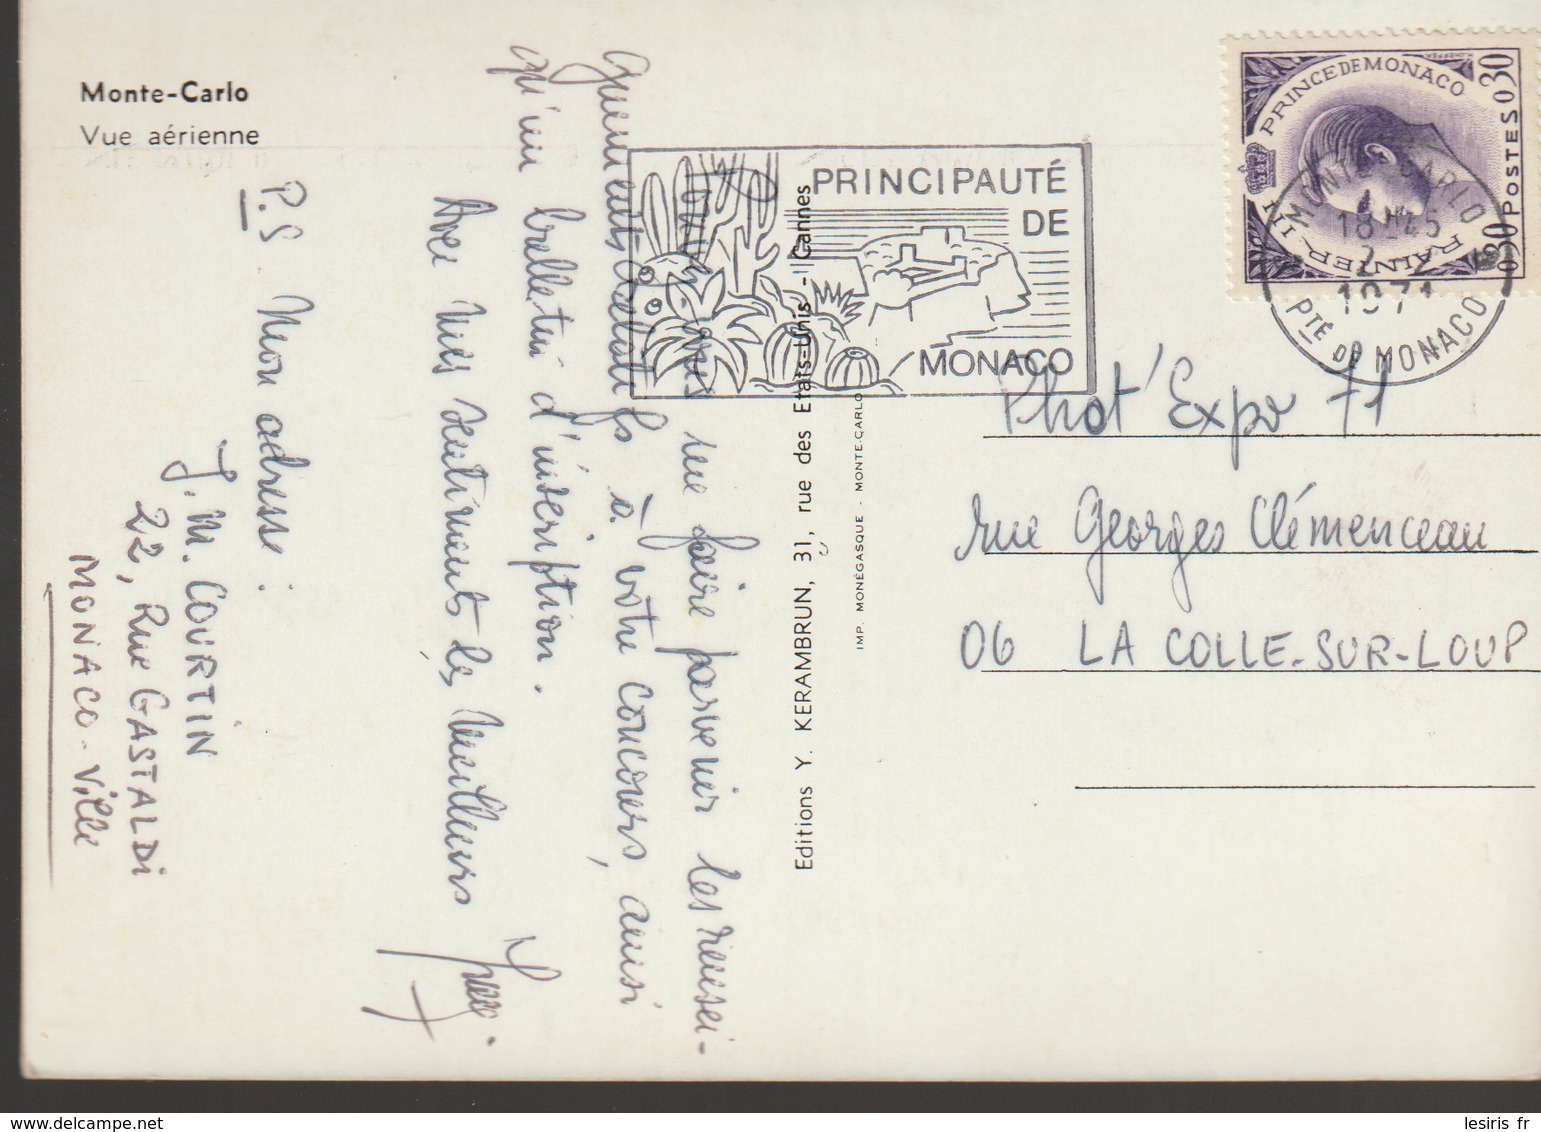 Monte-Carlo
Vue aérienne
PRINCIPAUTÉ
DE
MONACO
RAINIER III PRINCE DE MONACO
POSTES 0,30
0,30
MONTE-CARLO
18H45
2-2
1971
PTÉ DE MONACO
me faire parvenir les rensei-
gnements relatifs à votre concours, ainsi
qu'un bulletin d'inscription.
Avec mes sentiments les meilleurs
P.S Mon adresse :
J.M. COURTIN
22, Rue GASTALDI
MONACO-Ville
Editions Y. KERAMBRUN, 31, rue des Etats-Unis - Cannes
IMP. MONÉGASQUE - MONTE-CARLO
Phot'Expo 71
rue Georges Clémenceau
06 LA COLLE-SUR-LOUP
lesiris fr